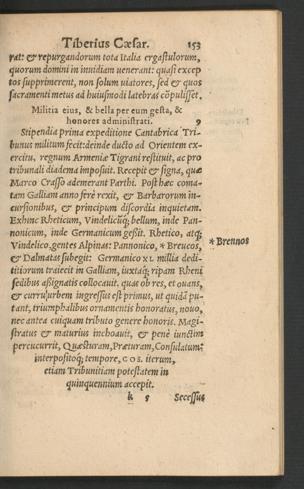 Tiberius Cæsar. 153
rat: & repurgandorum tota Italia ergastulorum,
quorum domini in inuidiam uenerant: quasi excep
tos supprimerent, non solum uiatores, sed & quos
sacramenti metus ad huiusmodi latebras cõpulisset.
Militia eius, & bella per eum gesta, &
honores administrati. 9
Stipendia prima expeditione Cantabrica Tri-
bunus militum fecit: deinde ducto ad Orientem ex-
ercitu, regnum Armeniæ Tigrani restituit, ac pro
tribunali diadema imposuit. Recepit & signa, quæ
Marco Crasso ademerant Parthi. Post hæc coma-
tam Galliam anno ferè rexit, & Barbarorum in-
cursionibus, & principum discordia inquietam.
Exhinc Rheticum, Vindelicũq; bellum, inde Pan-
nonicum, inde Germanicum gessit. Rhetico, atq;
Vindelico, gentes Alpinas: Pannonico, * Breucos, * Brennos
& Dalmatas subegit: Germanico XL millia dedi-
titiorum traiecit in Galliam, iuxtaq; ripam Rheni
sedibus assignatis collocauit. quas ob res, et ouans,
& curru urbem ingressus est primus, ut quidã pu-
tant, triumphalibus ornamentis honoratus, nouo,
nec antea cuiquam tributo genere honoris. Magi-
stratus & maturius inchoauit, & penè iunctim
percucurrit, Quæsturam, Præturam, Consulatum:
interpositoq; tempore, COS. iterum,
etiam Tribunitiam potestatem in
quinquennium accepit.
k 5 Secessus